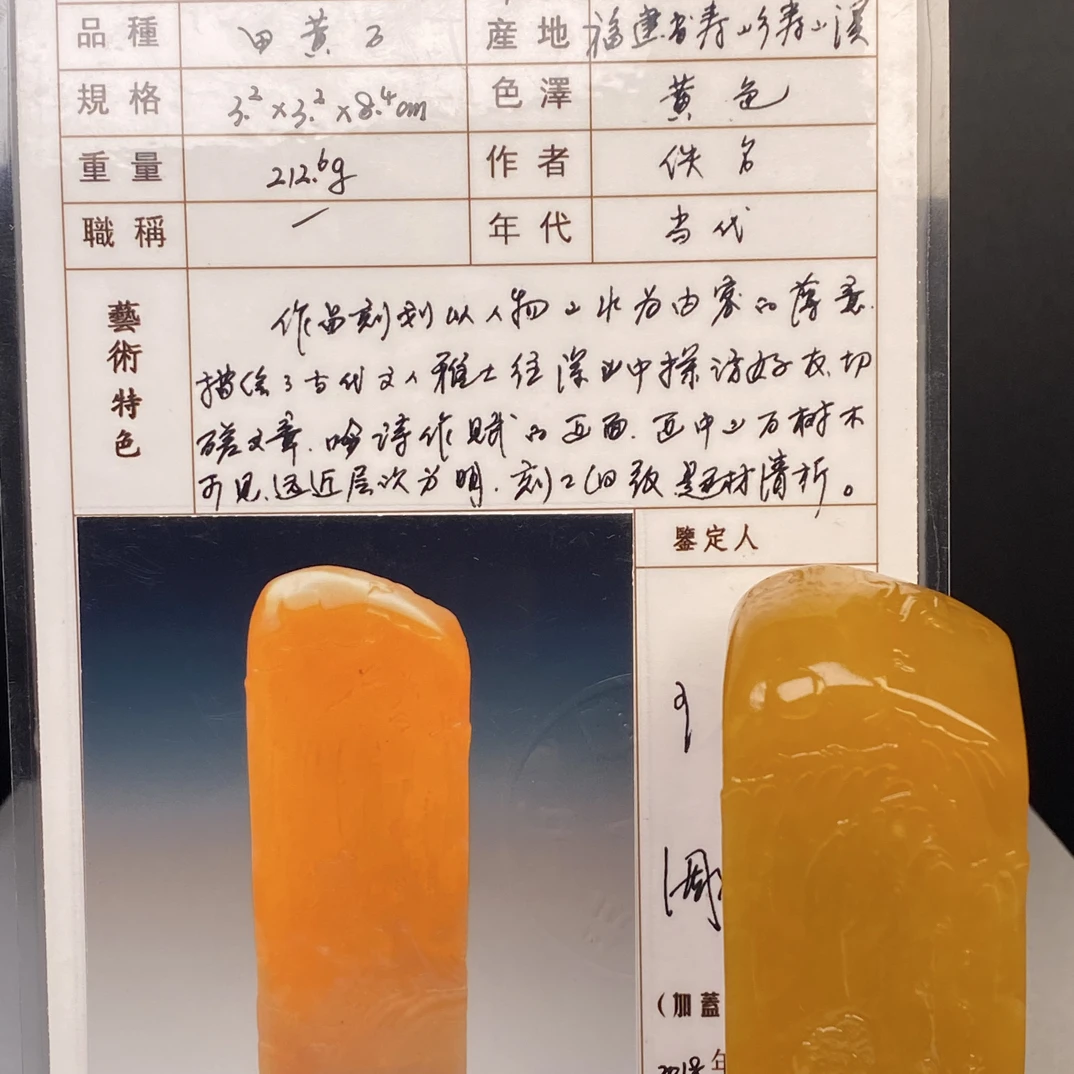 品種 田黄石 産地 福建省寿山乡寿山溪
規格 3.2×3.2×8.4cm 色澤 黄色
重量 212.6g 作者 佚名
職稱 一 年代 当代
藝術特色
作品刻划以人物山水为内容的薄意.
描绘了古代文人雅士往深山中探访好友.切
磋文章.吟诗作赋的画面.画中山石树木
可见.远近层次分明.刻工细致题材清晰。
鑒定人
(加蓋
2018年